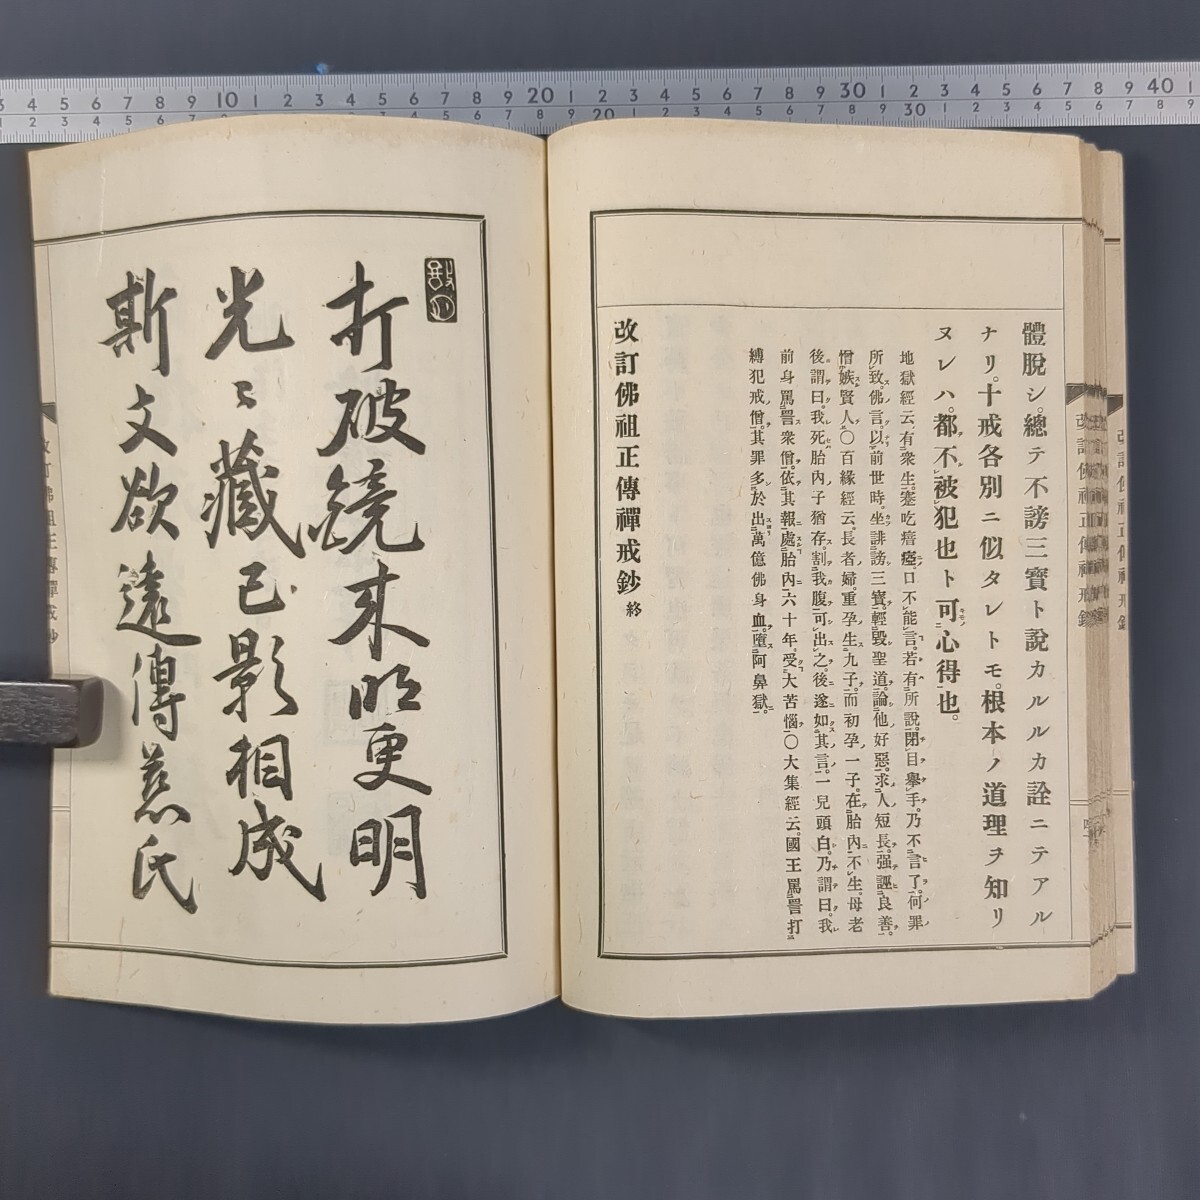 體脫シ。總テ不謗三寶ト說カルルカ詮ニテアル
ナリ。十戒各別ニ似タレトモ。根本ノ道理ヲ知リ
ヌレハ。都不被犯也ト可心得也。
地獄經云。有衆生。蹇吃瘖瘂。口不能言。若有所說。閉目擧手。乃不言了。何罪
所致。佛言。以前世時。坐誹謗三寶。輕毀聖道。論他好惡。求人短長。强誣良善。
憎嫉賢人〇百緣經云。長者婦。重孕生九子。而初孕一子。在胎內不生。母老
後謂曰。我死胎內子猶存。割我腹可出之。後遂如其言。一兒頭白。乃謂曰。我
前身罵詈衆僧。依其報處胎內六十年。受大苦惱〇大集經云。國王罵詈打
縛犯戒僧。其罪多於出萬億佛身血。墮阿鼻獄。
改訂佛祖正傳禪戒鈔 終
打破鏡来的更明
光〻藏已影相成
斯文欲遠傳慈氏
改訂佛祖正傳禪戒鈔